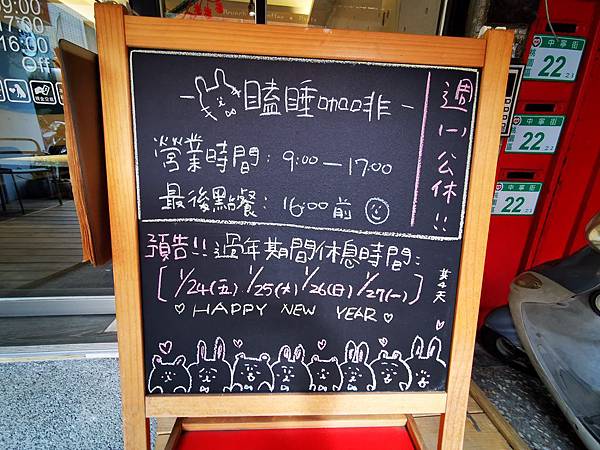 瞌睡咖啡
週(一)公休!!
營業時間: 9:00—17:00
最後點餐: 16:00前
預告!! 過年期間休息時間:
[1/24(五) 1/25(六) 1/26(日) 1/27(一)] 共4天
♡ HAPPY NEW YEAR ♡
中寧街
22
中寧街
22
中寧街
22
17:00
16:00
Off